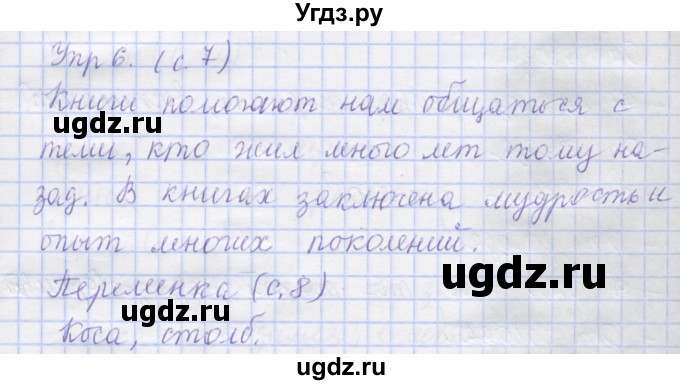 Угдз.ру
Упр 6. (с. 7)
Книги помогают нам общаться с
ugdz.ru ugdz.ru
теми, кто жил много лет тому на-
зад. В книгах заключена мудрость и
опыт многих поколений.
ugdz.ru
Переменка (с. 8)
ugdz.ru
Коса, столб.
ugdz.ru
ugdz.ru